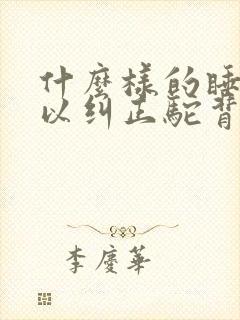 什麼樣的睡
以糾正駝背
李慶華